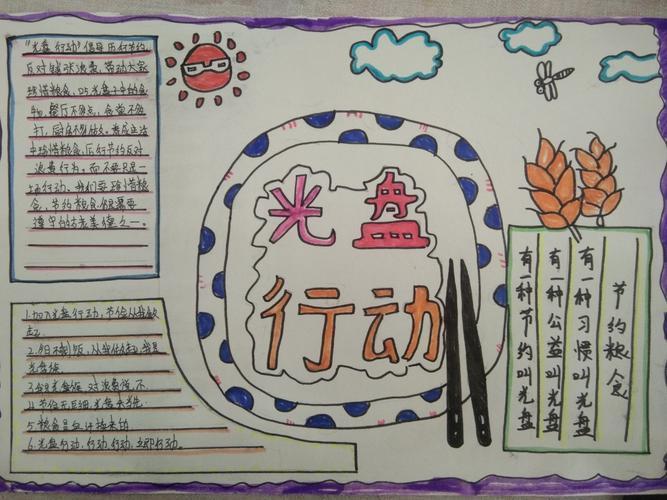 "光盘行动"倡导厉行节约,
反对铺张浪费,带动大家
珍惜粮食,吃光盘子中的食
物,餐厅不多点,食堂不多
打,厨房不多做。养成生活
中珍惜粮食,厉行节约反对
浪费行为。而不要只是一
场行动。我们要珍惜粮
食,节约粮食仍是需要
遵守的传统美德之一。
光盘
行动
节约粮食
有一种习惯叫光盘
有一种公益叫光盘
有一种节约叫光盘
1.加入光盘行动,节俭从我做
起。
光盘族
3.我是光盘族 对浪费说不
4.节俭无巨细,光盘来
5.粮食
6.光盘行动,行动,行动,立即行动。